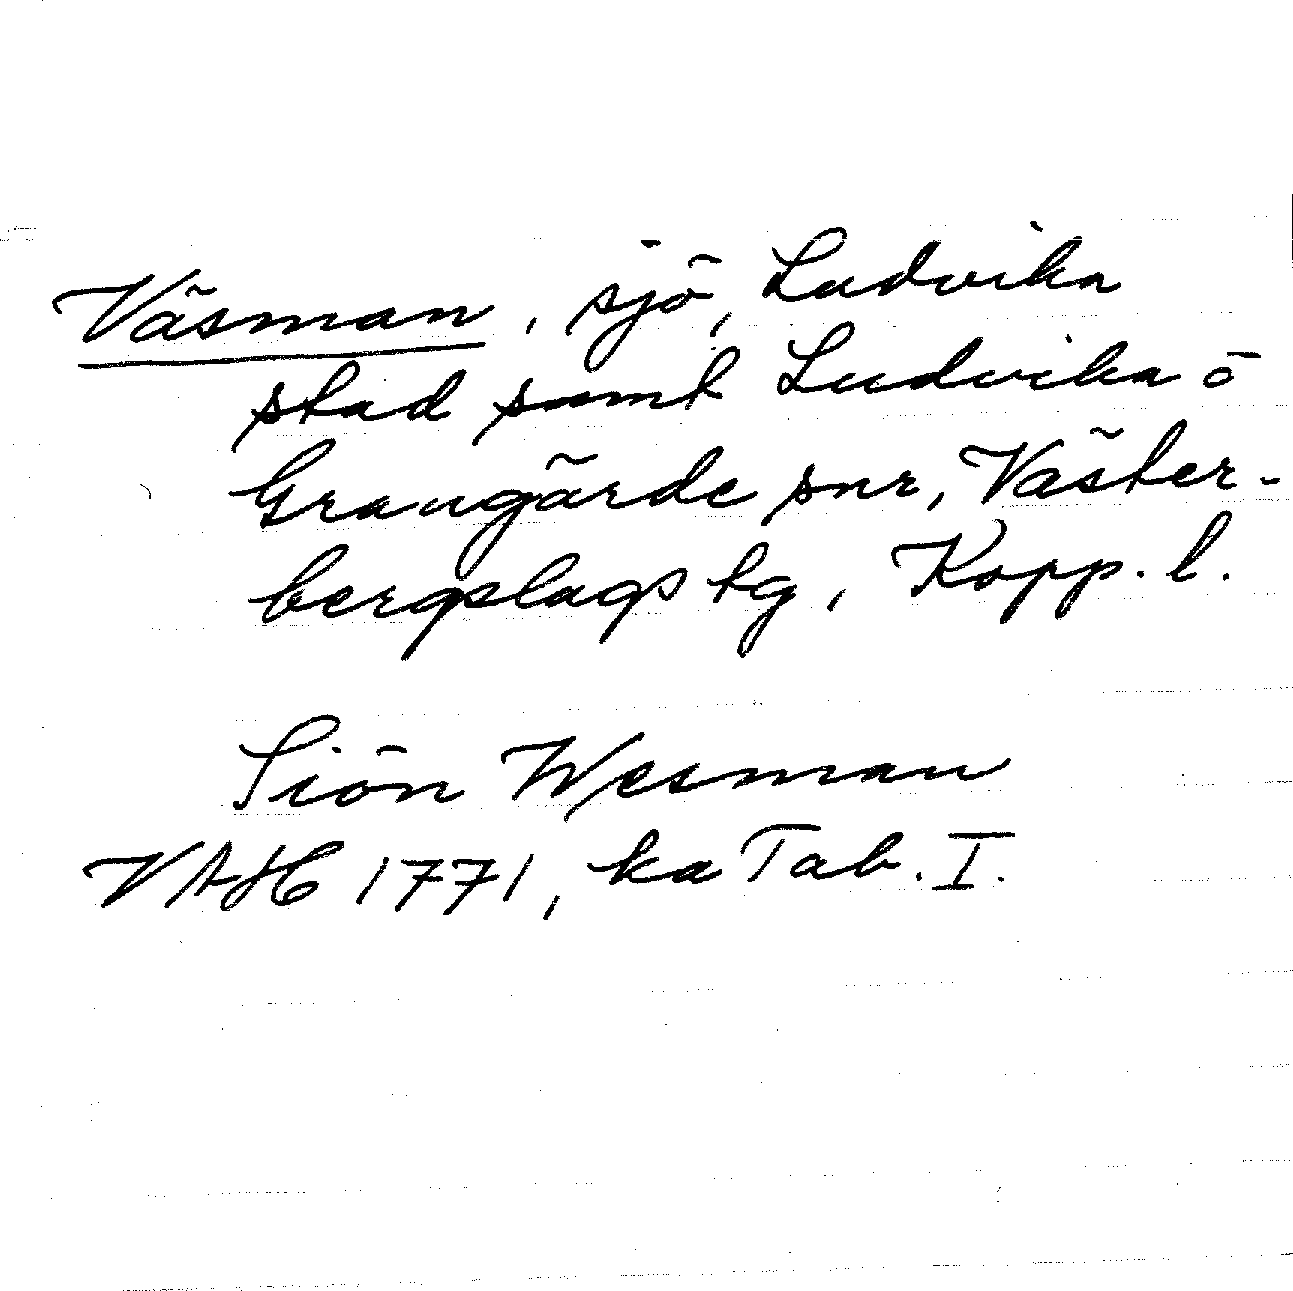 Väsman, sjö, Ludvika
stad samt Ludvika o
Grangärde snr, Väster-
bergslags tg, Kopp. l.
Siön Wesman
VAH 1771, ka Tab. I.